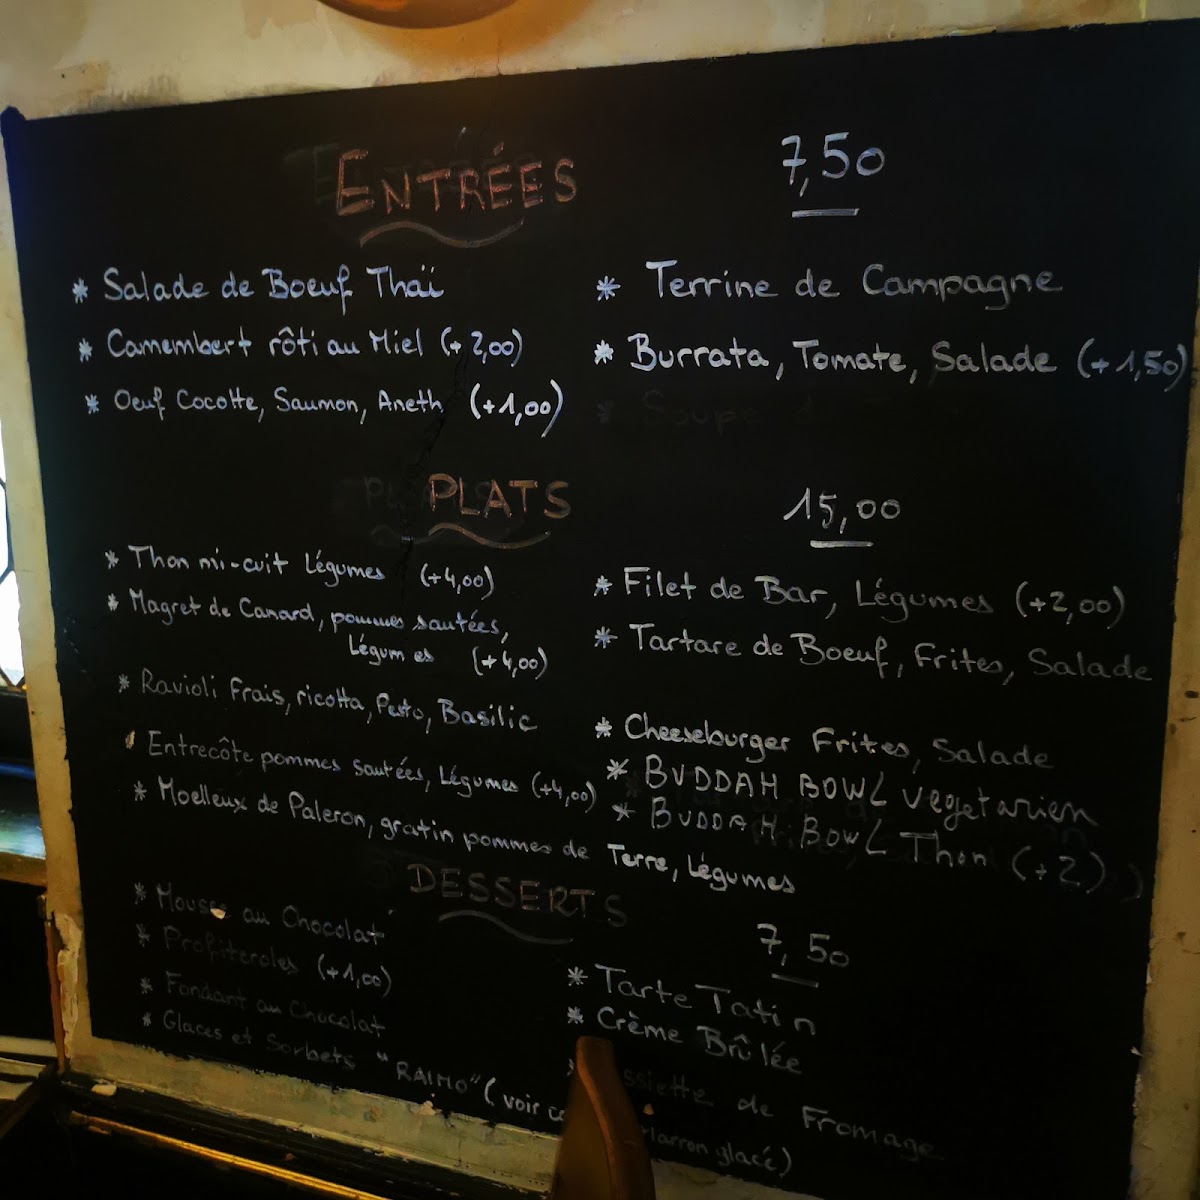 ENTRÉES
7,50
* Salade de Boeuf Thaï
* Camembert rôti au Miel (+ 2,00)
* Oeuf Cocotte, Saumon, Aneth (+1,00)
* Terrine de Campagne
* Burrata, Tomate, Salade (+1,50)
* Soupe
PLATS
15,00
* Thon mi-cuit Légumes (+4,00)
* Magret de Canard, pommes sautées,
Légumes (+4,00)
* Ravioli Frais, ricotta, Pesto, Basilic
Entrecôte pommes sautées, Légumes (+4,00)
* Moelleux de Paleron, gratin pommes de Terre, Légumes
* Filet de Bar, Légumes (+2,00)
* Tartare de Boeuf, Frites, Salade
* Cheeseburger Frites, Salade
* BUDDAH BOWL vegetarien
* BUDDAH BOWL Thon (+2)
DESSERTS
7,50
* Mousse au Chocolat
* Profiteroles (+1,00)
* Fondant au Chocolat
* Glaces et Sorbets "RAIMO" (voir
Marron glacé)
* Tarte Tatin
* Crème Brûlée
de Fromage